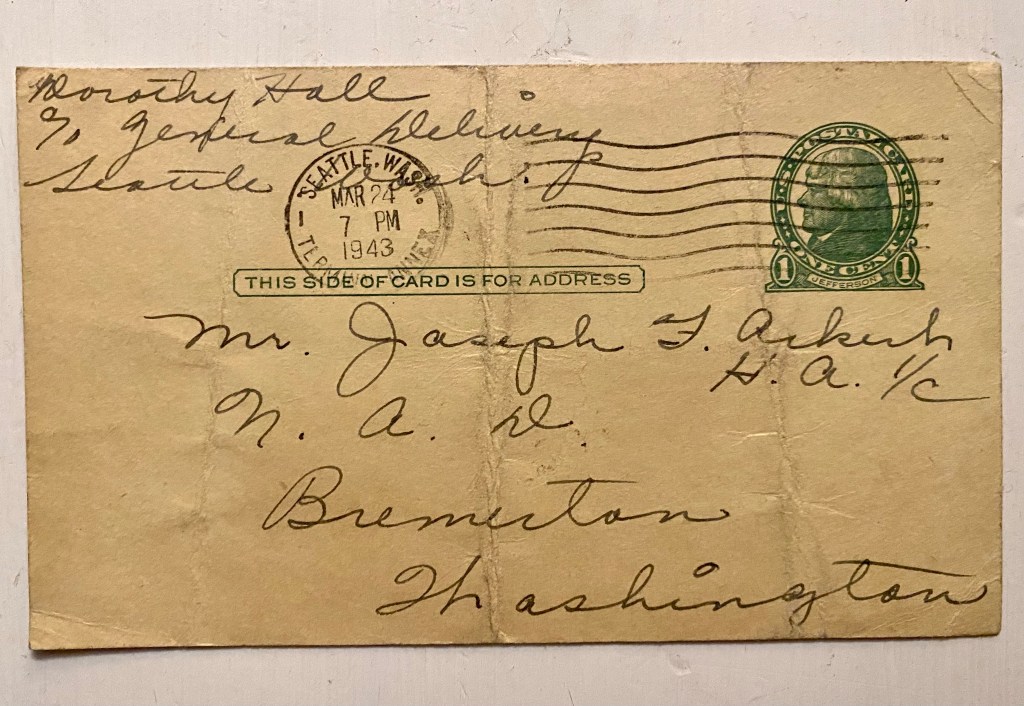 Dorothy Hall
c/o General Delivery
Seattle Wash.
SEATTLE, WASH.
MAR 24
7 PM
1943
TERMINAL ANNEX
U.S. POSTAL CARD
ONE CENT
1 1
JEFFERSON
THIS SIDE OF CARD IS FOR ADDRESS
Mr. Joseph F.
H. A. 1/c
N. A. D.
Bremerton
Washington